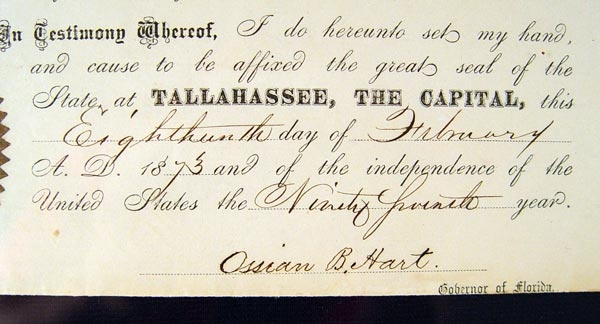 In Testimony Whereof, I do hereunto set my hand,
and cause to be affixed the great seal of the
State, at TALLAHASSEE, THE CAPITAL, this
Eightheenth day of February
A. D. 1873 and of the independence of the
United States the Ninety Seventh year.
Ossian B. Hart.
Governor of Florida.